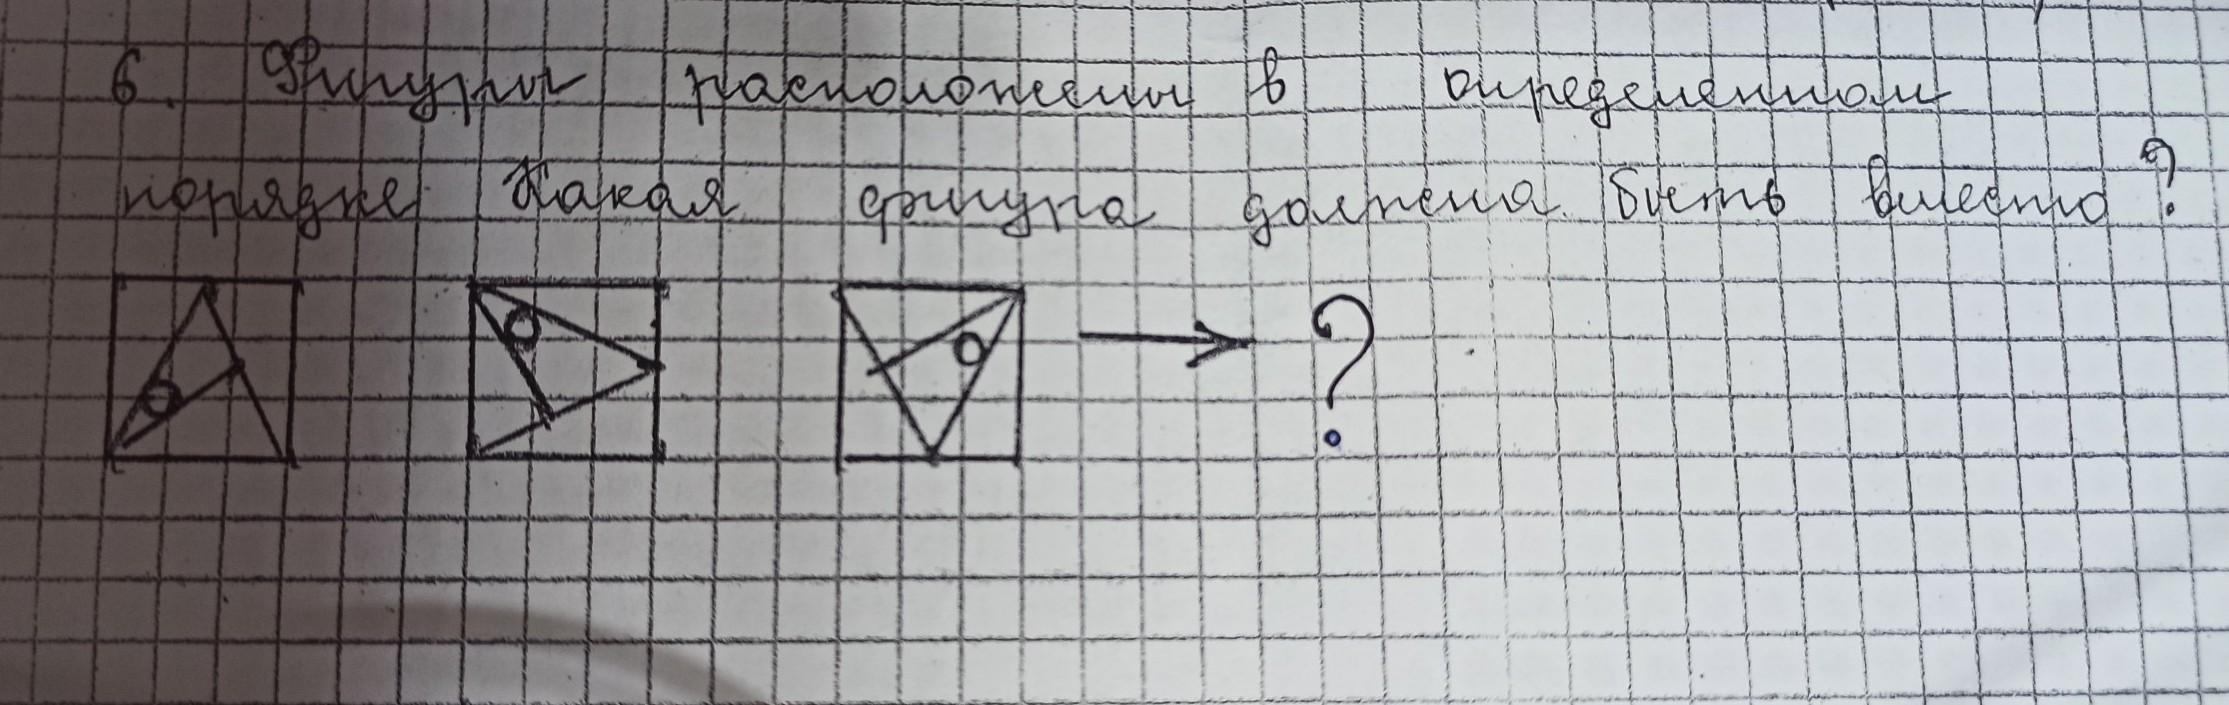 6. Фигуры расположены в определенном
порядке. Какая фигура должна быть вместо ?
?